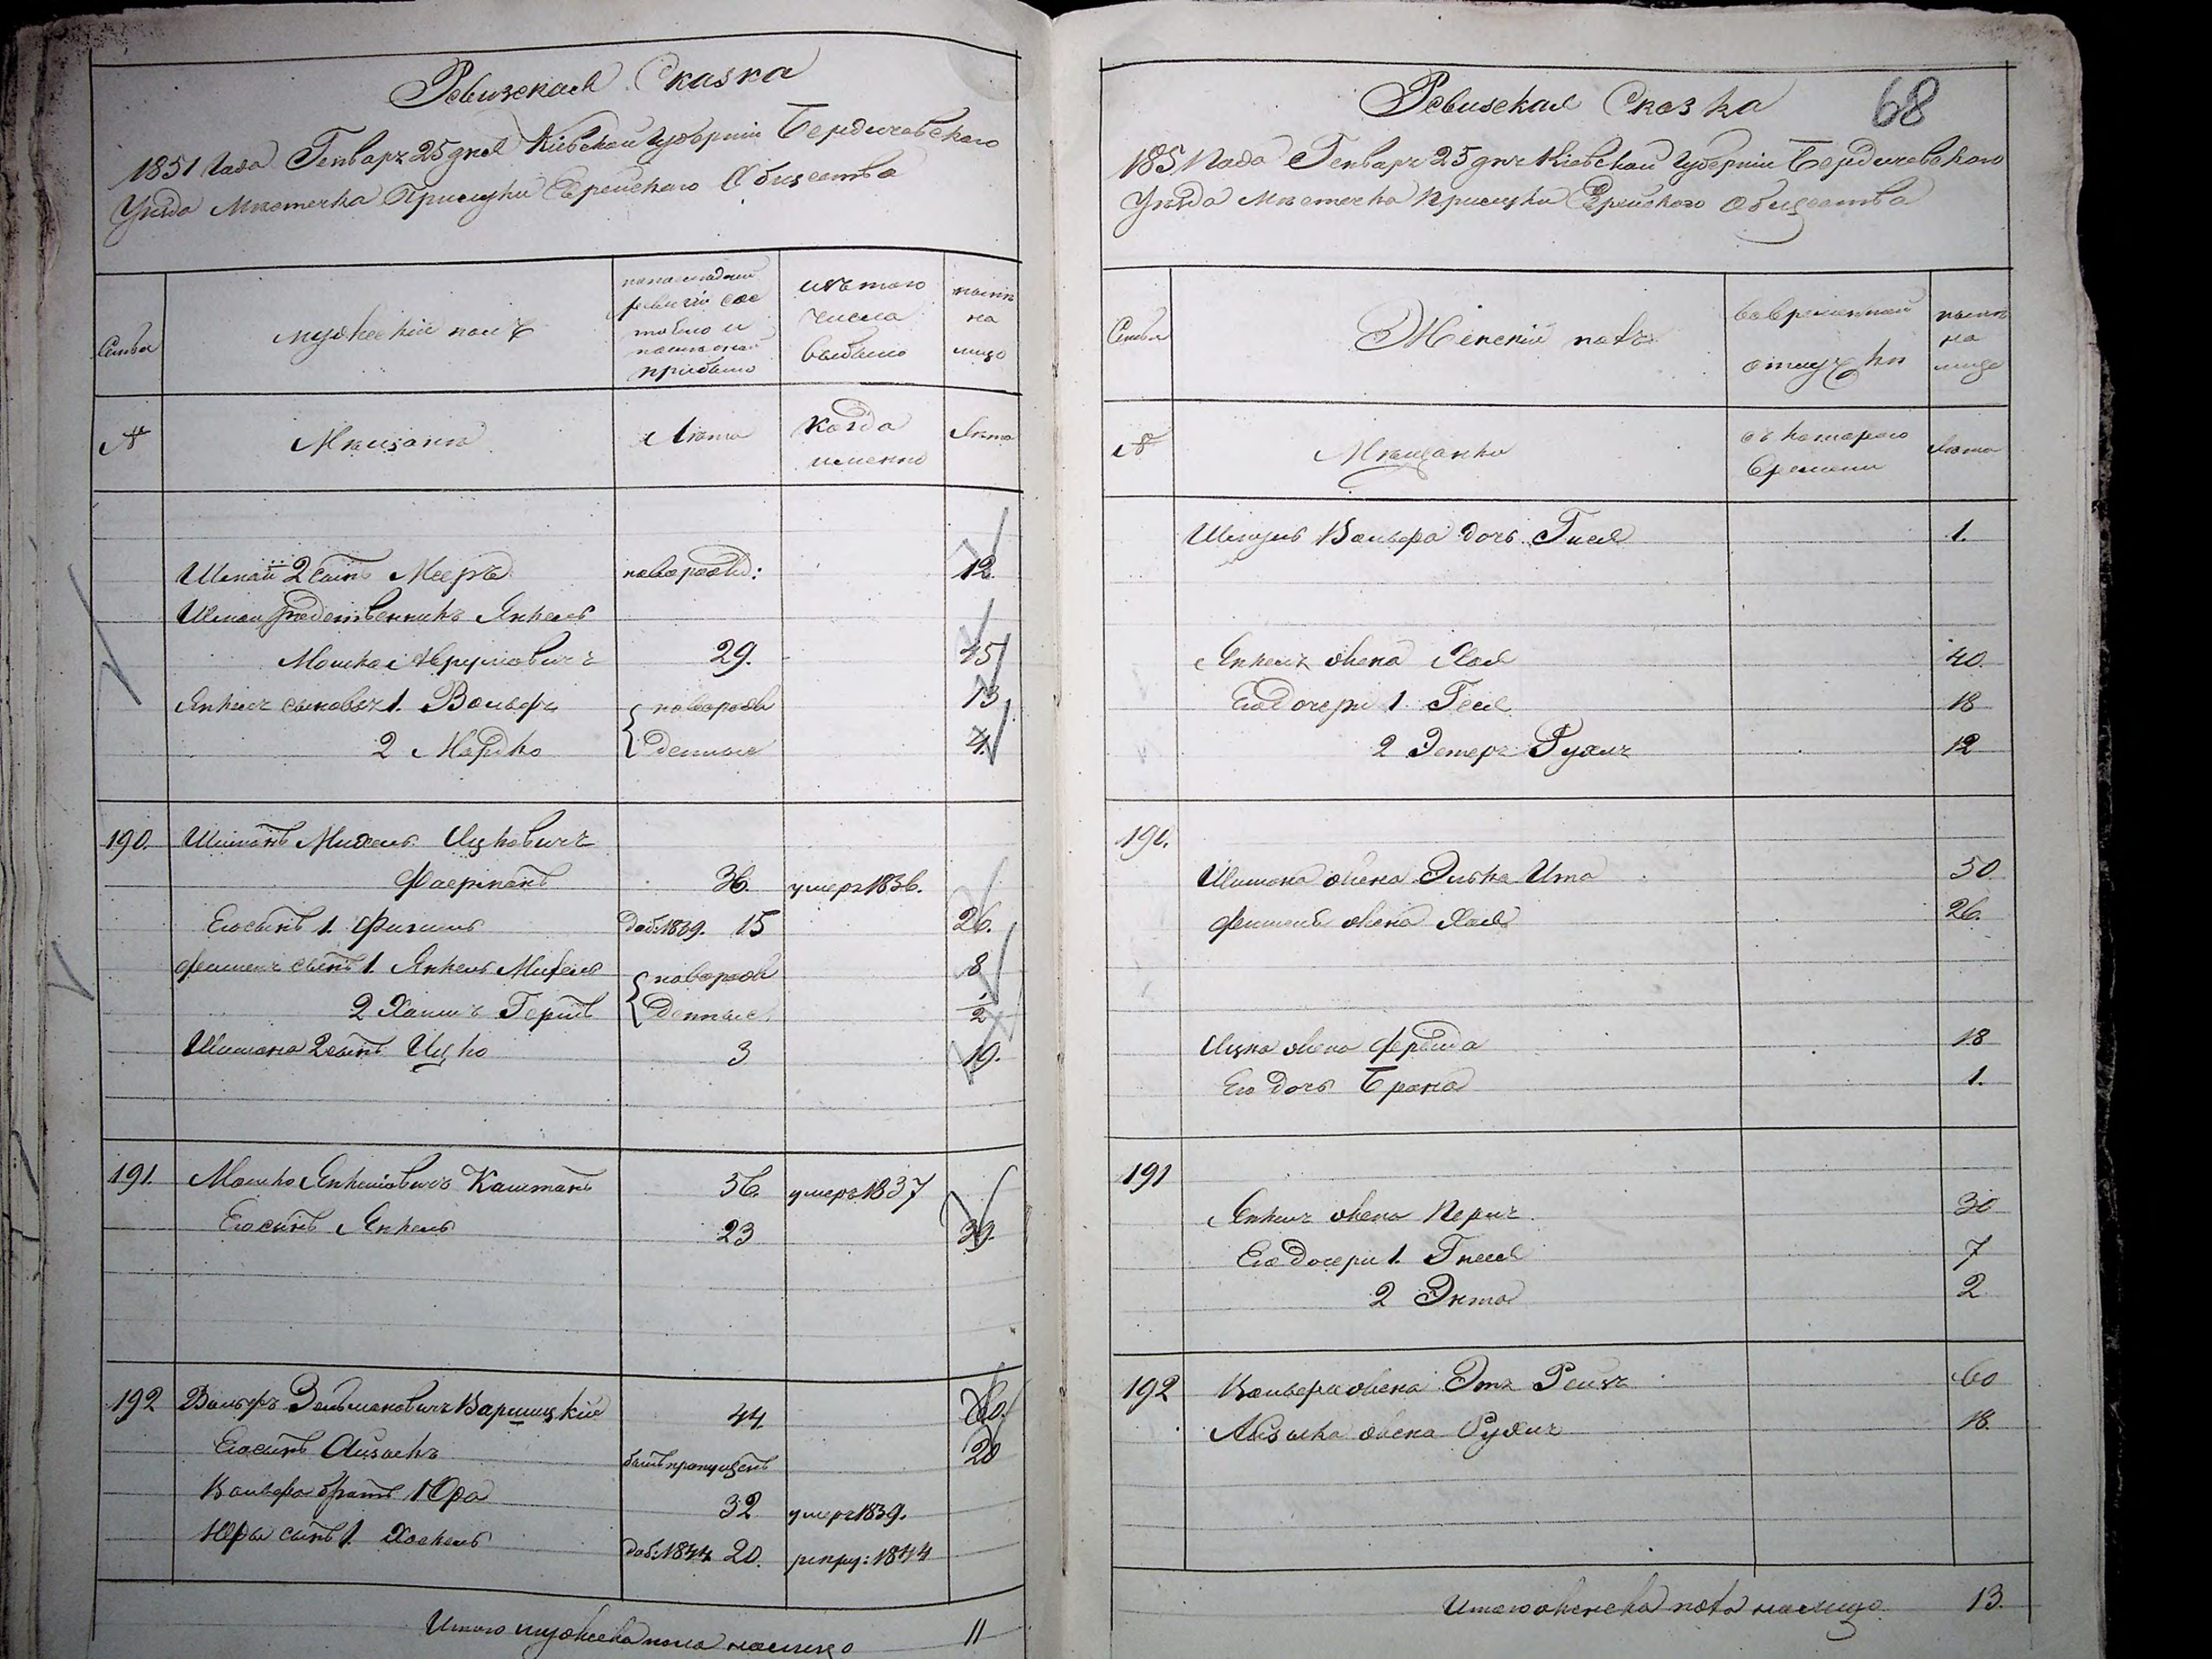 Ревизская Сказка
1851 Года Генваря 25 дня Кіевской Губерніи Бердичевского
Уезда Мѣстечка Прилуки Еврейского Общества
Семья
мужескій полъ
по последней
ревизіи сос
тояло и
после оной
прибыло
изъ того
числа
выбыло
нынѣ
на
лицо
№
Мѣщанѣ
Лѣта
Когда
именно
Лѣта
2 сынъ Мееръ новорожд: 12.
родственникъ Янкель
Мошко 29. 45
Янкеля сыновья 1. Вольфъ новорож 13
2 Мордко денные 4
190. Шимонъ Михель Ицковичъ
36. умеръ 1836.
Его сынъ 1. Фишель доб: 1839. 15 26.
Фишеля сынъ 1. Янкель Михель новорож 8
2 Хаимъ Гершъ денные 1/2
Шимона 2 сынъ Ицко 3 19.
191. Мошко Янкеліовичъ Каштанъ 56. умеръ 1837
Его сынъ Янкель 23 39.
192 Вольфъ Зельмановичъ 44. 60.
Его сынъ Айзыкъ былъ пропущенъ 20
Вольфа братъ Юра 32 умеръ 1839.
Юры сынъ 1. Хаскель доб: 1844 20. рекру: 1844
Итого мужеска пола налицо 11
68
Ревизская Сказка
1851 Года Генваря 25 дня Кіевской Губерніи Бердичевского
Уезда Мѣстечка Прилуки Еврейского Общества
Семья
Женскій полъ
во временной
отлучки
нынѣ
на
лице
№
Мѣщанки
съ котораго
времени
Лѣта
Вольфа дочь 1.
Янкеля жена Хая 40.
Его дочери 1. 18
2 Эстеръ Рухля 12
190.
Шимона жена Элька Ита 50
Фишеля жена Хая 26.
Ицка жена Фрейда 18
Его дочь Брана 1.
191
Янкеля жена Перля 30
Его дочери 1. Гнеся 7
2 2
192 Вольфа жена 60
Айзыка жена Рухля 18.
Итого женска пола налицо 13.